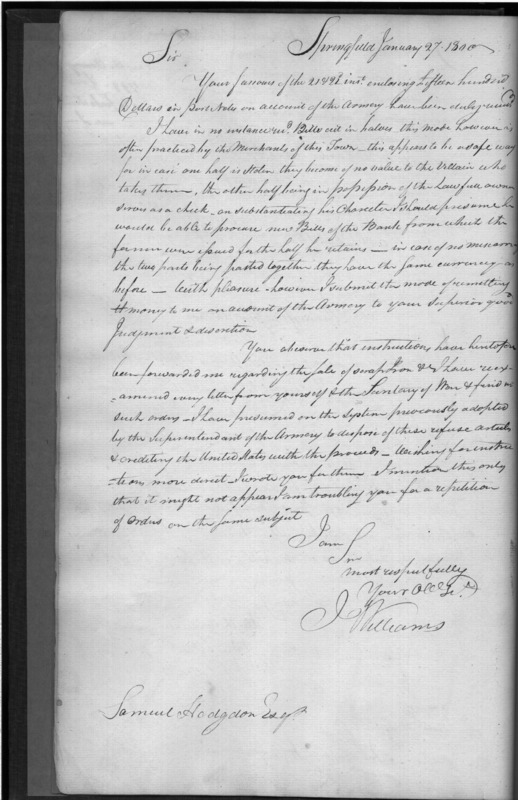 Springfield January 27. 1800
Sir
Your favours of the 21 & 98 inst. enclosing fifteen hundred
Dollars in Post Notes on account of the Armory have been duly received
I have in no instance recd. Bills cut in halves this mode however is
often practiced by the Merchants of this Town — this appears to be a safe way
for in case one half is stolen they become of no value to the Villain who
takes them, the other half being in possession of the Lawfull owner
serves as a check, on substantiating his Character I should presume he
would be able to procure new Bills of the Bank from which the
former were issued for the half he retains — in case of no miscarriage
the two parts being pasted together they have the same currency as
before — with pleasure however I submit the mode of remitting
money to me on account of the Armory to your Superior good
Judgment & discretion
You observe that instructions have heretofore
been forwarded me regarding the sale of scrap Iron & I have reex=
=amined every letter from yourself & the Secretary of War & find no
such orders — I have presumed on the System previously adopted
by the Superintendant of the Armory to dispose of these refuse articles
& crediting the United States with the proceeds — wishing for instruc
=tions more direct I wrote you for them I mention this only
that it might not appear I am troubling you for a repetition
of orders on the same subject
I am
Sir
most respectfully
Your Obt. St.
J Williams
Samuel Hodgdon Esqr.